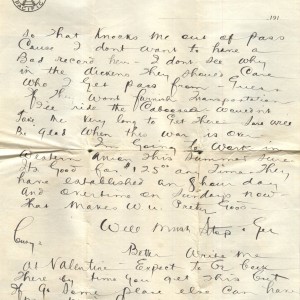 191
So that knocks me out of pass
Cause I dont want to have a
Bad record here - I dont see why
in the dickens they should Care
who I get pass from - Guess
if they want furnish transportation
I'll ride the Caboose. Wouldn't
take me very long to get there. Sure will
Be glad when this war is over
I'm Going to Work in
Western Union This Summer Sure
Its Good for $125 00 and Time They
have established an 8 hour day
and overtime on Sunday now
that makes W.U. Pretty Good -
Well Must Stop & Get
Busy.
Better Write me
at Valentine - Expect to Be back
there by time you get this but
if Go Some place else Can have